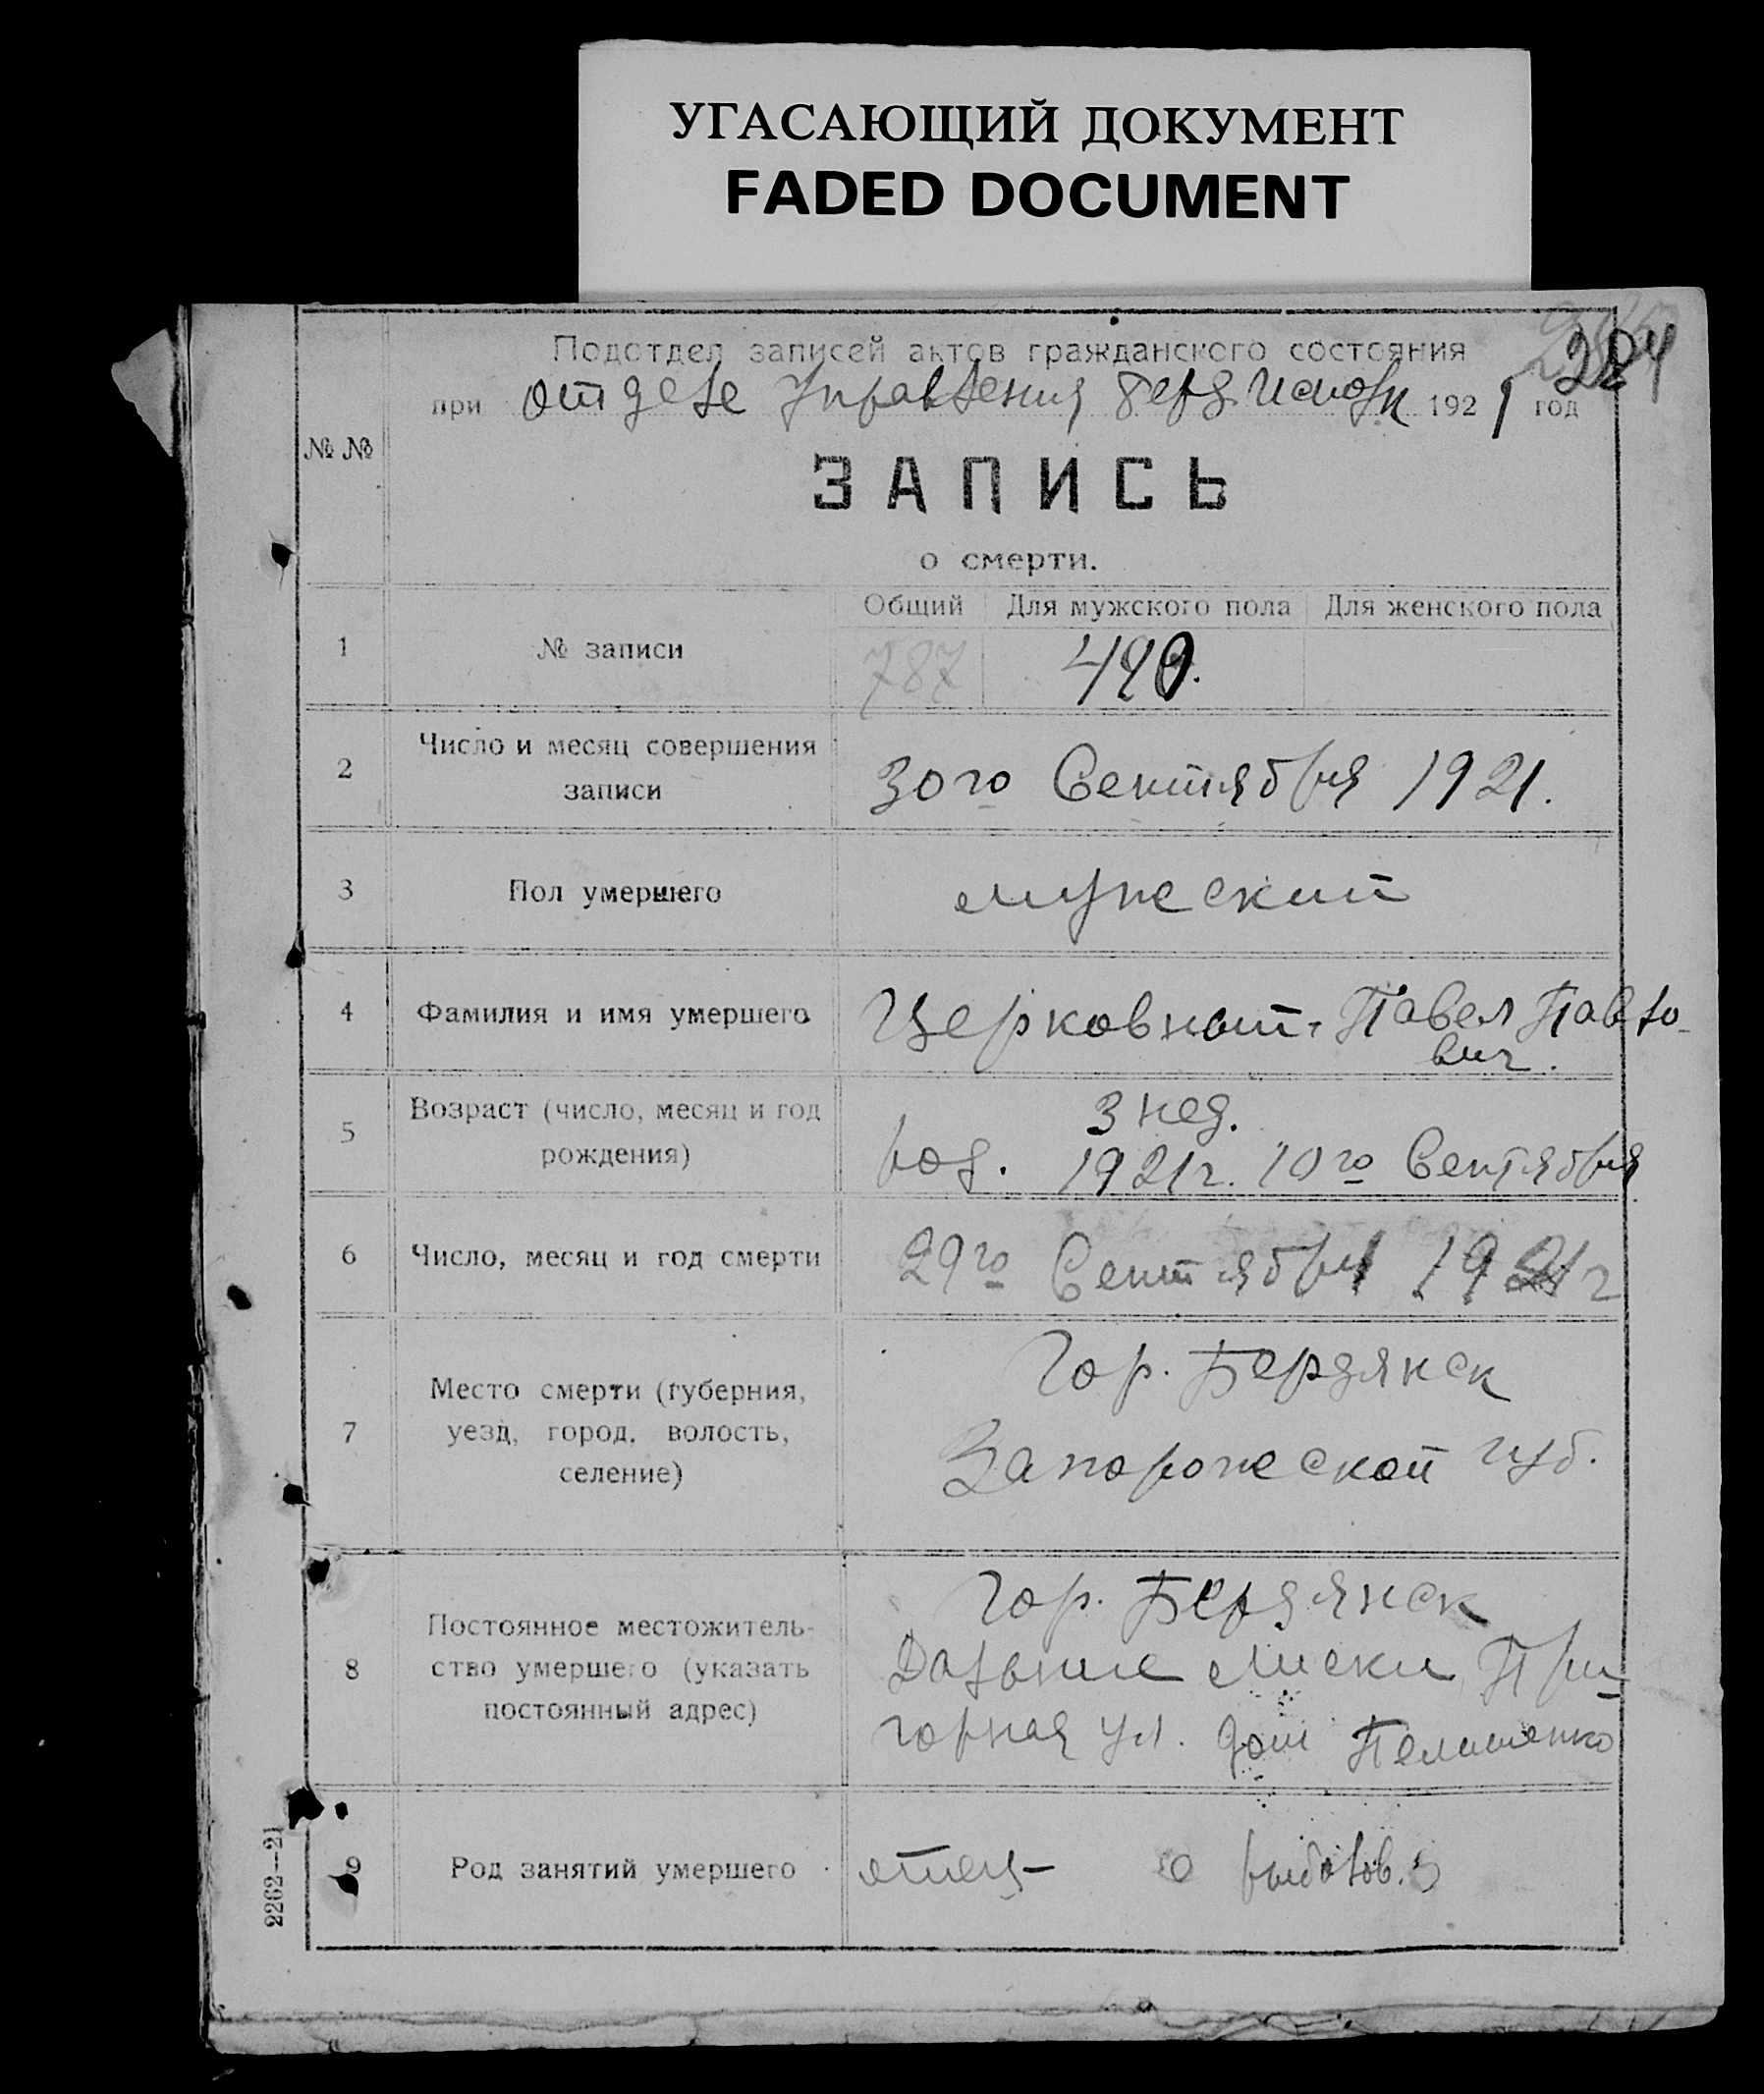 УГАСАЮЩИЙ ДОКУМЕНТ
FADED DOCUMENT
284
Подотдел записей актов гражданского состояния
при отделе Управления Берд. Исполк 1921 год
№ №
ЗАПИСЬ
о смерти.
Общий Для мужского пола Для женского пола
1 № записи 787 490.
2 Число и месяц совершения
записи
30го Сентября 1921.
3 Пол умершего мужеский
4 Фамилия и имя умершего Церковный Павел Павло-
вич.
5 Возраст (число, месяц и год
рождения)
3 нед.
род. 1921г. 10го Сентября
6 Число, месяц и год смерти 29го Сентября 1921г
7 Место смерти (губерния,
уезд, город, волость,
селение)
Гор. Бердянск
Запорожеской губ.
8 Постоянное местожитель-
ство умершего (указать
постоянный адрес)
Гор. Бердянск
Дальние Лиски При-
горная ул. дом
9 Род занятий умершего отец- рыболов.
2262—21